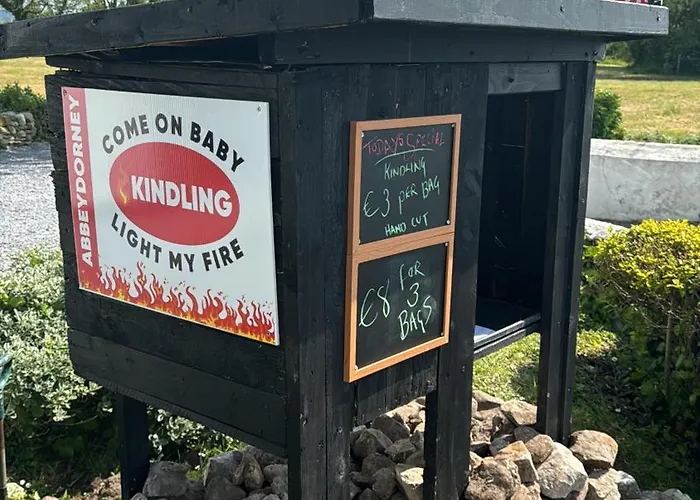 ABBEYDORNEY
COME ON BABY
KINDLING
LIGHT MY FIRE
TODAYS SPECIAL
KINDLING
€3 PER BAG
HAND CUT
€8 FOR
3
BAGS